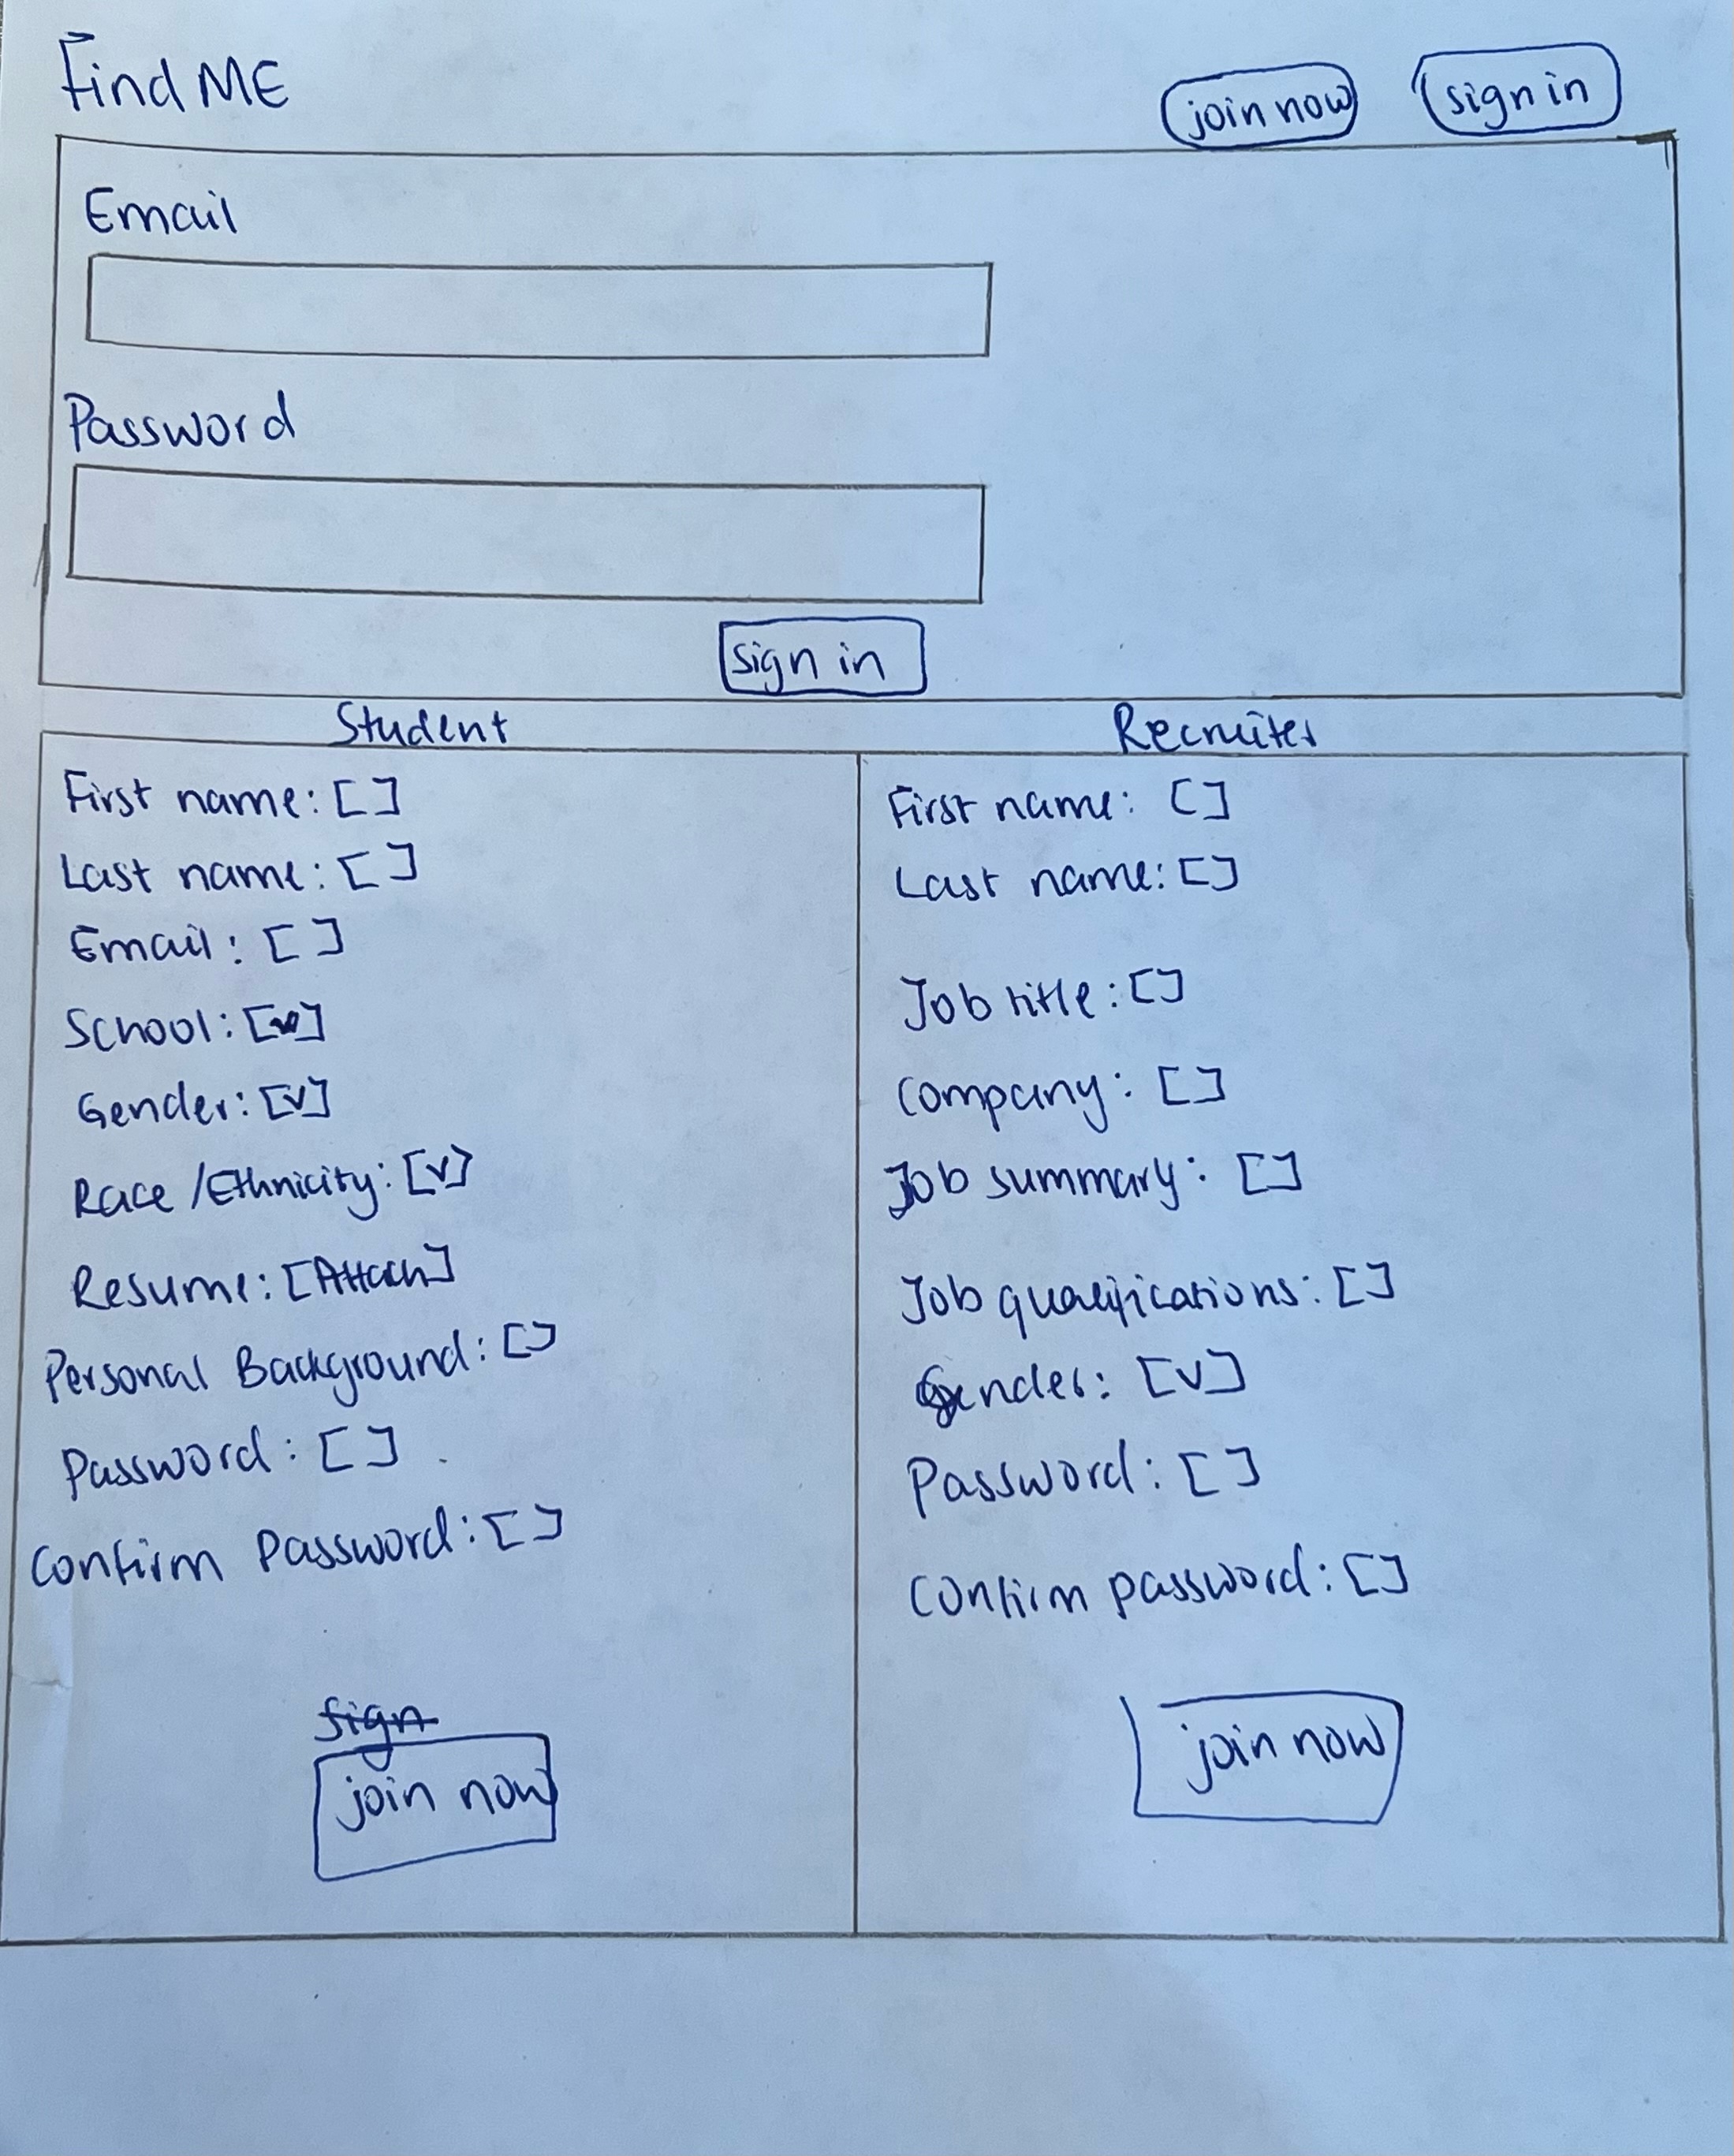 Find ME
join now
sign in
Email
Password
sign in
Student
Recruiter
First name: [ ]
Last name: [ ]
Email: [ ]
School: [v]
Gender: [v]
Race /Ethnicity: [v]
Resume: [Attach]
Personal Background: [ ]
Password: [ ]
Confirm Password: [ ]
sign
join now
First name: [ ]
Last name: [ ]
Job title: [ ]
Company: [ ]
Job summary: [ ]
Job qualifications: [ ]
Gender: [v]
Password: [ ]
Confirm password: [ ]
join now